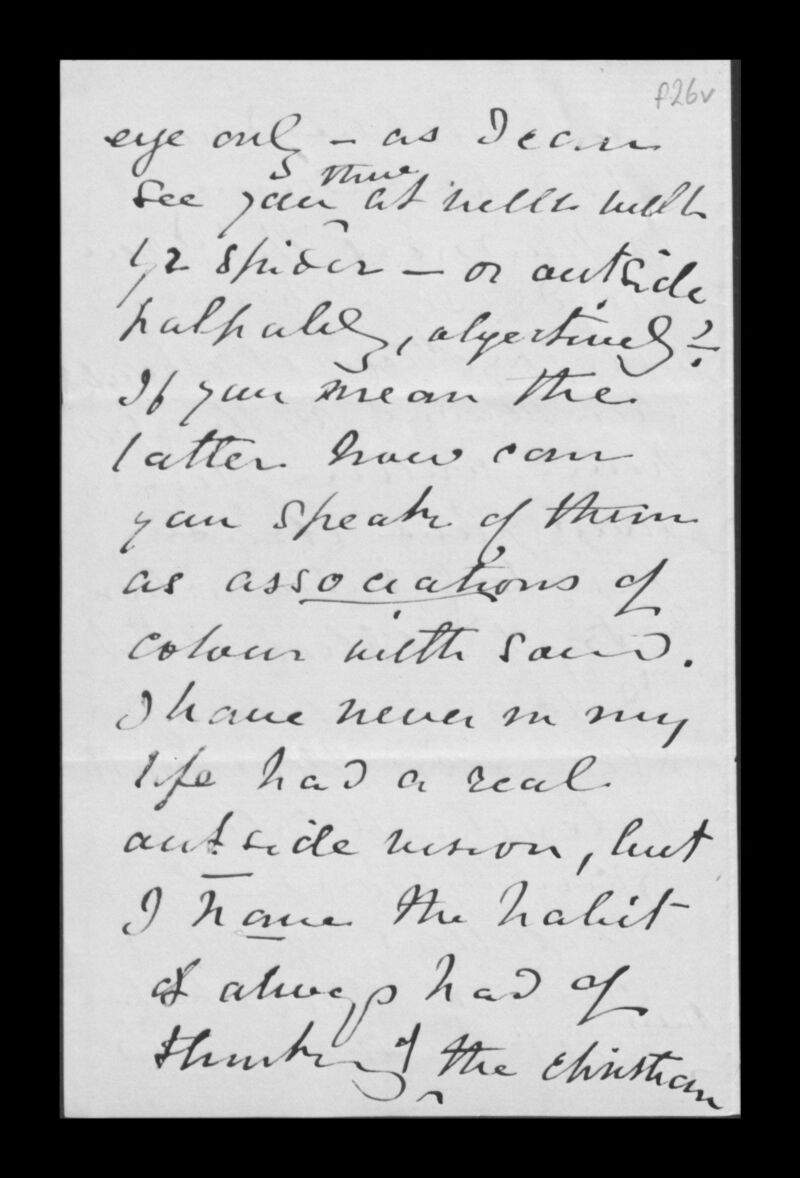 f26v
eye only – as I can
see you there at                with
yr spider – or outside
palpably, objectively?
If you mean the
latter how can
you speak of them
as associations of
colour with sound.
I have never in my
life had a real
outside vision, but
I have the habit
& always had of
thinking of the christian